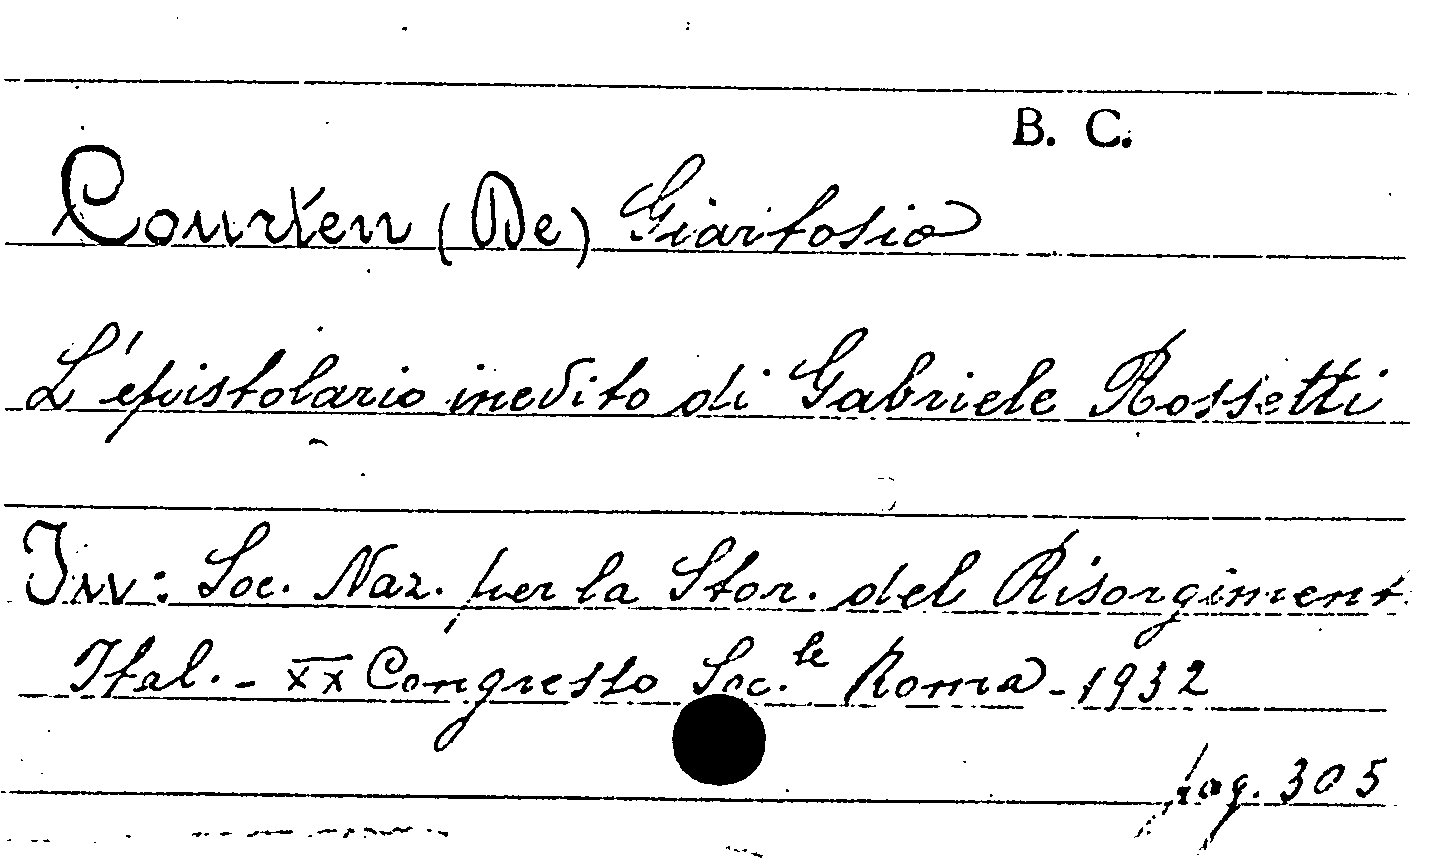 B. C.
Courten (De) Giartosio
L'epistolario inedito di Gabriele Rossetti
In: Soc. Naz. per la Stor. del Risorgiment.
Ital. - XX Congresso Soc.le Roma - 1932
pag. 305